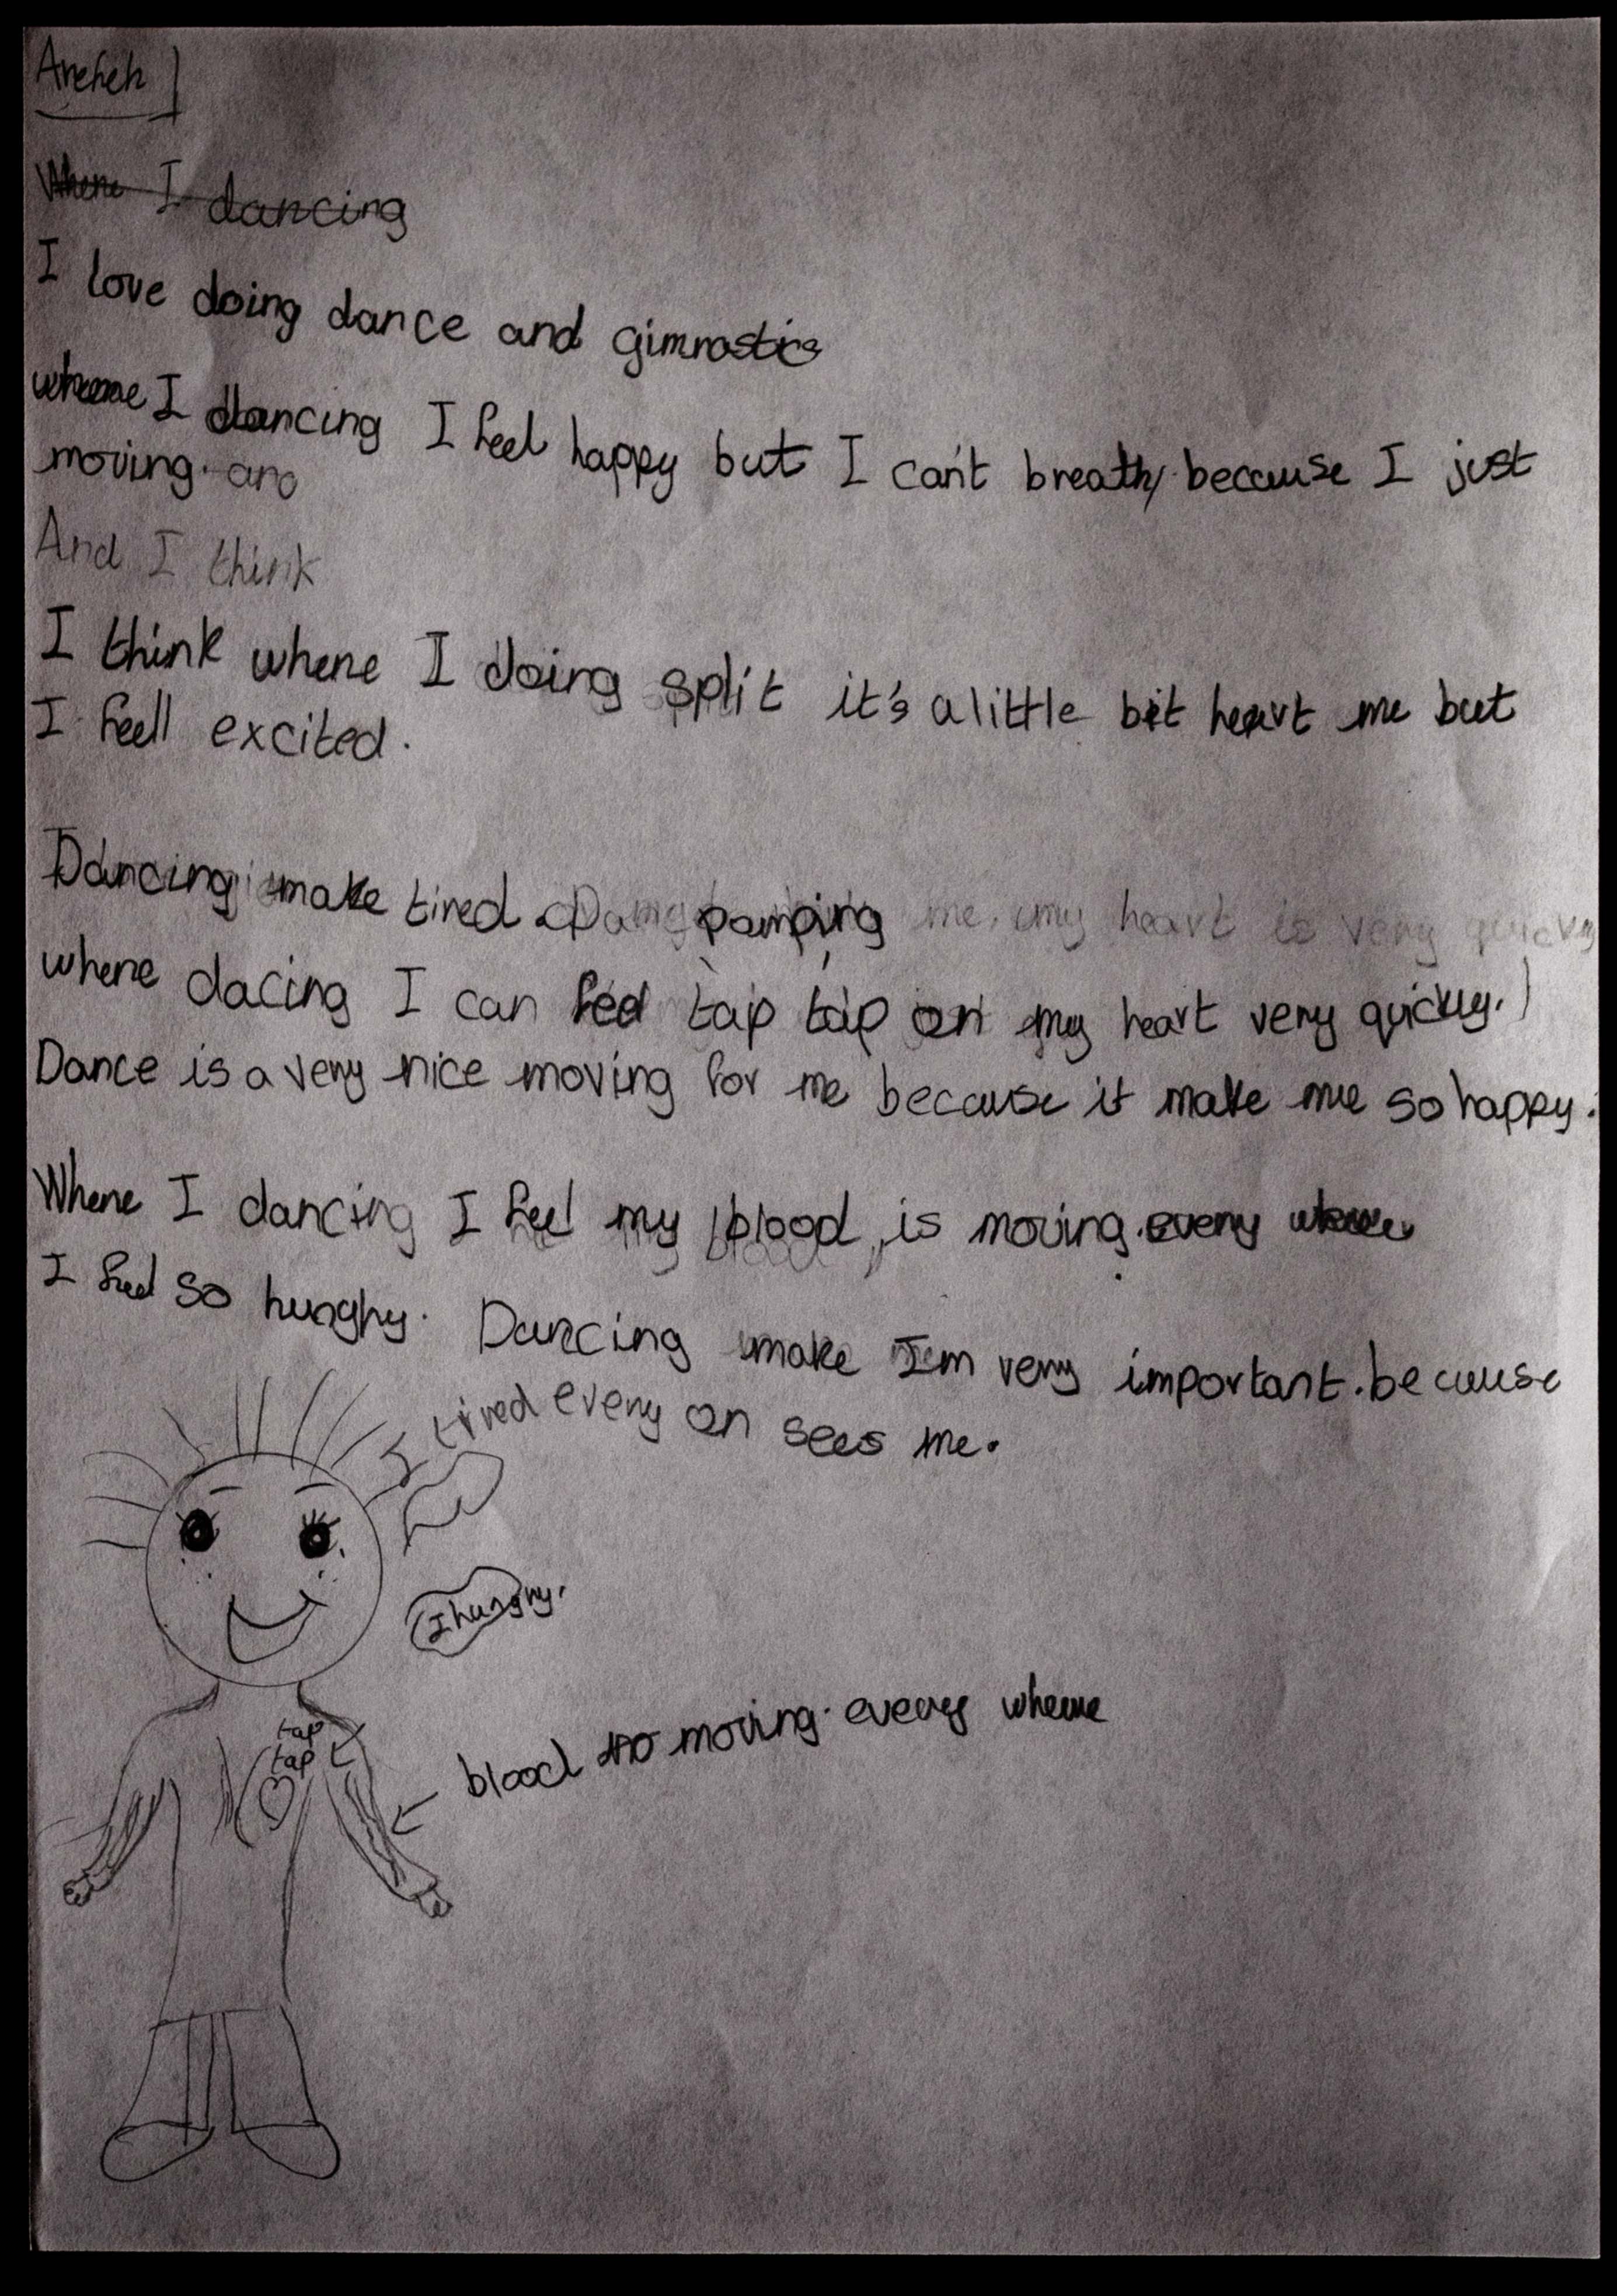 Arefeh
Where I dancing
I love doing dance and gimnastics
where I dancing I feel happy but I can't breath because I just
moving. and
And I think
I think where I doing split it's a little bit heart me but
I feell excited.
Dancing make tired pamping me, my heart is very quickly
where dacing I can feel tap tap on my heart very quickly.
Dance is a very nice moving for me because it make me so happy.
Where I dancing I feel my blood is moving. every where
I feel so hunghy. Dancing make I'm very important. because
every on sees me.
I tired
I hungry.
tap
tap
blood moving. every where